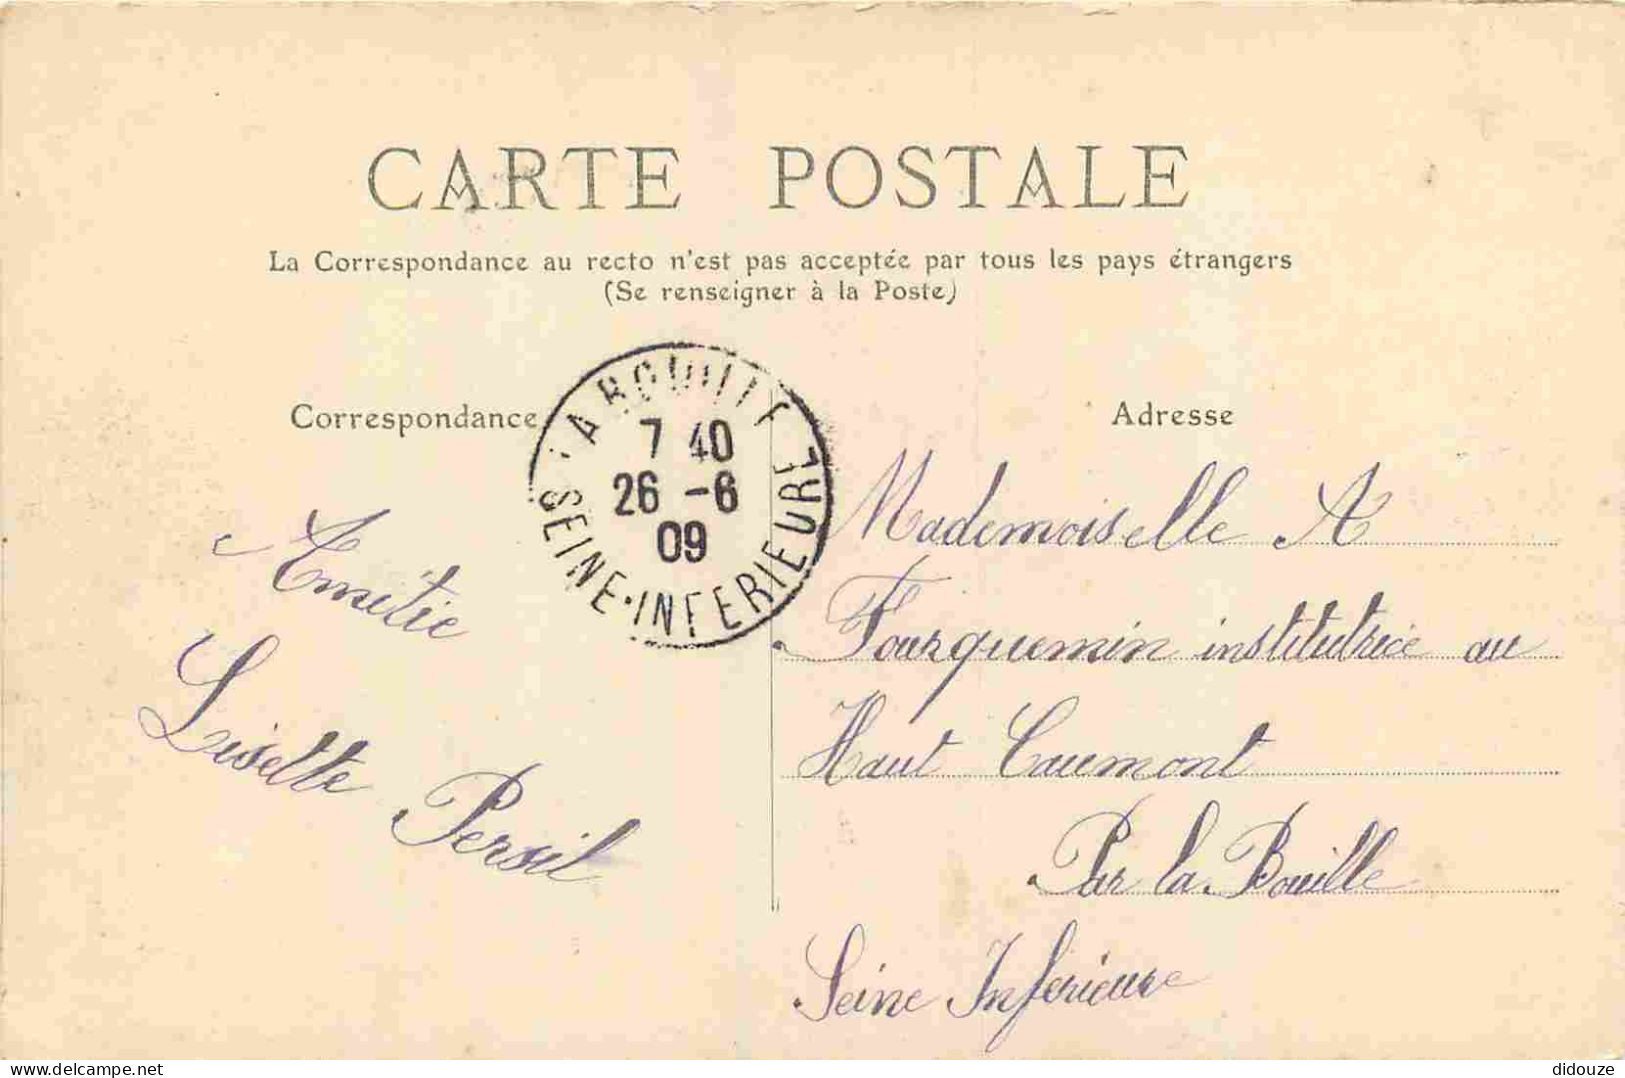 CARTE POSTALE
La Correspondance au recto n'est pas acceptée par tous les pays étrangers
(Se renseigner à la Poste)
Correspondance
Amitie
Lisette Persil
LA BOUILLE
7 40
26 -6
09
SEINE-INFERIEURE
Adresse
Mademoiselle A
Fourquemin institutrice au
Haut Caumont
Par la Bouille
Seine Inferieure
delcampe.net
didouze